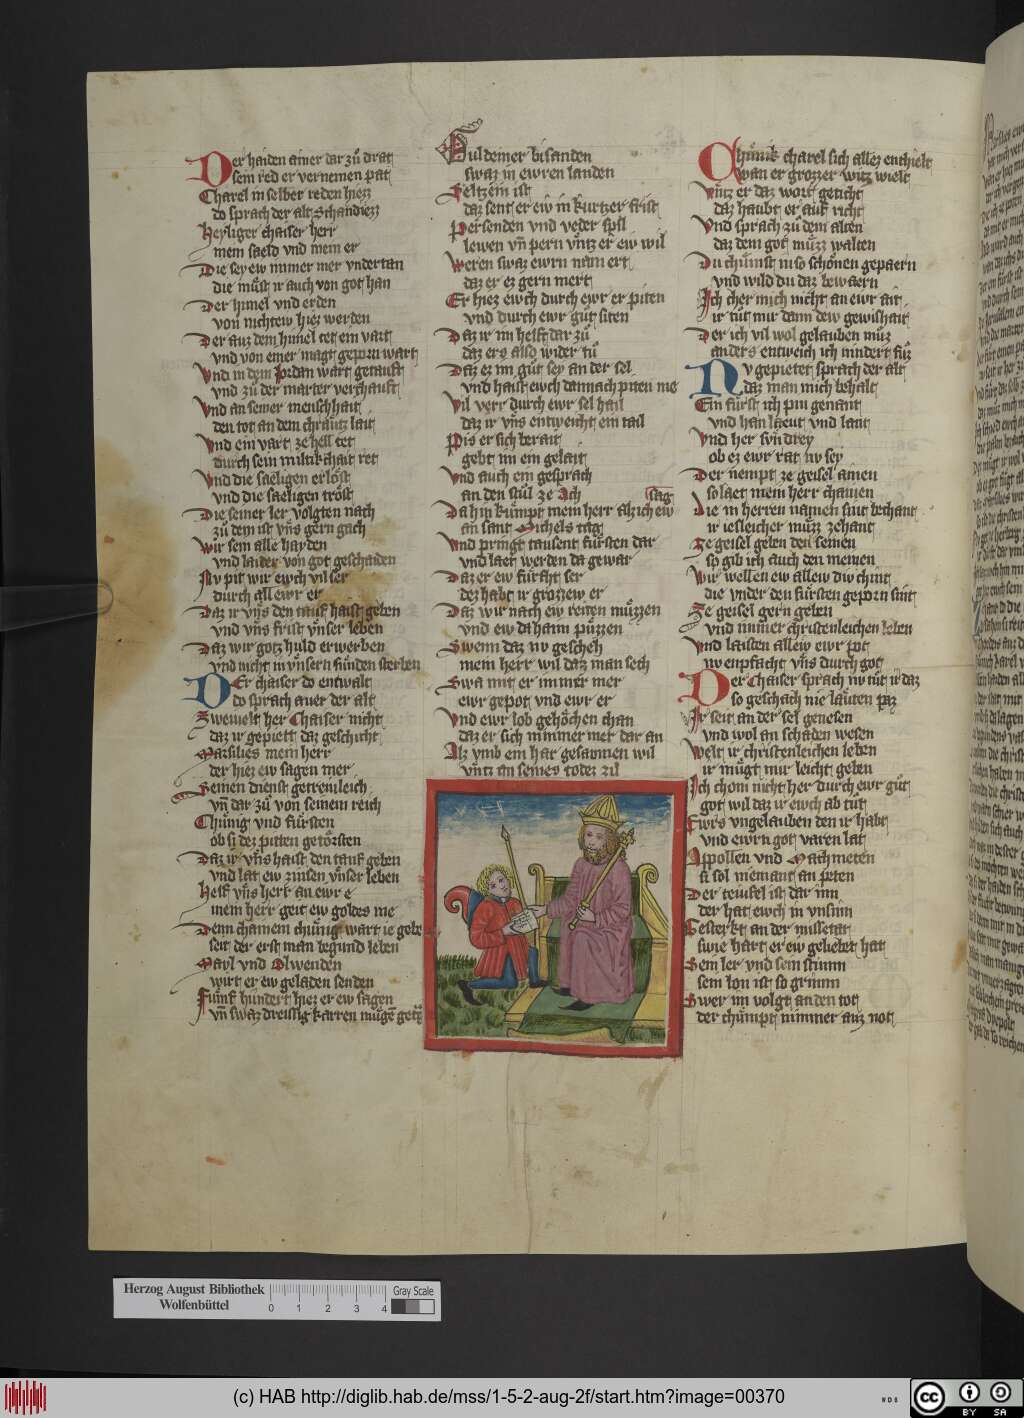 Der haiden ainer dar zů drat
sein red er vernemen pat
Charel in selber reden hiezz
do sprach der alt Schandiezz
Heyliger chaiser herr
mein saeld vnd mein er
Die sey ew nimer mer vndertan
die můst ir auch von got han
Der himel vnd erden
von nichtew hiez werden
Der auz dem himel tet ein vart
vnd von einer magt geporn wart
Vnd in dem Jordan wart getauft
vnd zů der marter verchauft
Vnd an seiner menschhait
den tot an dem chräutz lait
Vnd ein vart ze hell tet
durch sein miltikchait ret
Vnd die saeligen erlöst
vnd die saeligen tröst
Die seiner ler volgten nach
zů dem ist vns gern gach
Wir sein alle hayden
vnd laider von got geschaiden
Nv pit wir ewch vil ser
durch all ewr er
Daz ir vns den tauf haist geben
vnd vns frist vnser leben
Daz wir gotz huld erwerben
vnd nicht in vnsern sünden sterben
Der chaiser do entwalt
do sprach auer der alt
Zweiuelt her Chaiser nicht
daz ir gepiett daz geschicht
Marsilies mein herr
der hiez ew sagen mer
Seinen dienst getrewleich
vn dar zů von seinem reich
Chünig vnd fürsten
ob si dez piten getörsten
Daz ir vns haist den tauf geben
vnd lat ew zinsen vnser leben
Helf vns herr an ewr e
mein herr geit ew goldes me
Denn chainem chünig wart ie gebe
seit der erst man begund leben
Mayl vnd Olwenden
wirt er ew geladen senden
Fünf hundert hiez er ew sagen
vn swaz dreissig karren müge getr
Guldeiner bisanden
swaz in ewren landen
Seltzein ist
daz sent er ew in kurtzer frist
Persenden vnd veder spil
lewen vn pern vntz er ew wil
Weren swaz ewrn nam ert
daz er ez gern mert
Er hiez ewch durch ewr er piten
vnd durch ewr gůt siten
Daz ir im helft dar zů
daz ers also wider tů
Daz ez im gůt sey an der sel
vnd haist ewch dannach piten me
Vil verr durch ewr sel hail
daz ir vns entweicht ein tail
Pis er sich berait
gebt im ein gelait
Vnd auch ein gesprach
an den stůl ze Ach
sag
Da hin kümpt mein herr alz ich ew
an sant Michels tag
Vnd pringt tausent fürsten dar
vnd laet werden da gewar
Daz er ew fürcht ser
dez habt ir grozzew er
Daz wir nach ew reiten müzzen
vnd ew dahaim püzzen
Swenn daz nv gescheh
mein herr wil daz man sech
Swa mit er immer mer
ewr gepot vnd ewr er
Vnd ewr lob gehöchen chan
daz er sich nimmer mer dar an
Alz vmb ein har gesaumen wil
vntz an seines todez zil
Chünik charel sich allez enthielt
wan er grozzer witz wielt
Vntz er daz wort geticht
daz haubt er auf richt
Vnd sprach zů dem alten
daz dem got müzz walten
Du chümst in so schönen gepaern
vnd wild du daz bewaern
Ich cher mich nicht an ewr ait
ir tůt mir dann dew gewishait
Der ich vil wol gelauben můz
anders entweich ich nindert fůz
Nv gepietet sprach der alt
daz man mich behalt
Ein fürst ich pin genant
vnd han laeut vnd lant
Vnd her svn drey
ob ez ewr rat nv sey
Der nempt ze geisel ainen
so laet mein herr chainen
Die in herren namen sint bechant
ir iesleicher müzz zehant
Ze geisel geben den seinen
so gib ich auch den meinen
Wir wellen ew allew diw chint
die vnder den fürsten geporn sint
Ze geisel gern geben
vnd immer christenleichen leben
Vnd laisten allew ewr pot
nv enpfacht vns durch got
Der Chaiser sprach nv tůt ir daz
so geschach nie läuten paz
Ir seit an der sel genesen
vnd wol an schaden wesen
Welt ir christenleichen leben
ir mügt mir leicht geben
Ich chom nicht her durch ewr gůt
got wil daz ir ewch ab tůt
Ewrs vngelauben den ir habt
vnd ewrn got varen lat
Appollen vnd Machmeten
si sol niemant an peten
Der teuifel ist dar inn
der hat ewch in vnsinn
Gesterkt an der missetat
swie hart er ew geliebet hat
Sein ler vnd sein stimm
sein lon ist so grimm
Swer im volgt an den tot
der chümpt nimmer auz not
Herzog August Bibliothek
Wolfenbüttel
0 1 2 3 4
Gray Scale
(c) HAB http://diglib.hab.de/mss/1-5-2-aug-2f/start.htm?image=00370
WDB
cc BY SA